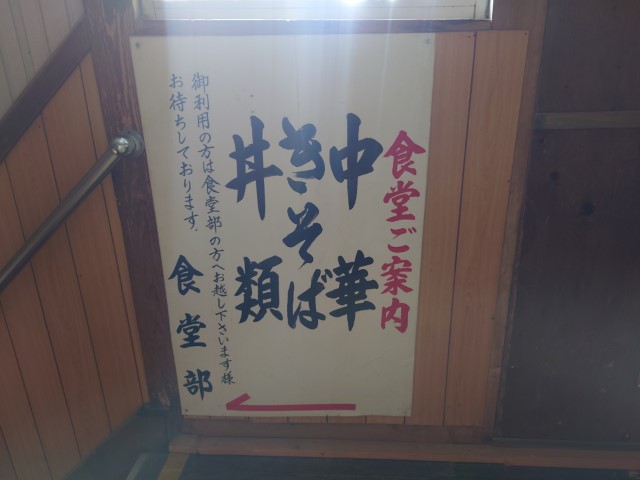 食堂ご案内
中華
きそば
丼類
御利用の方は食堂部の方へお越し下さいます様
お待ちしております。
食堂部